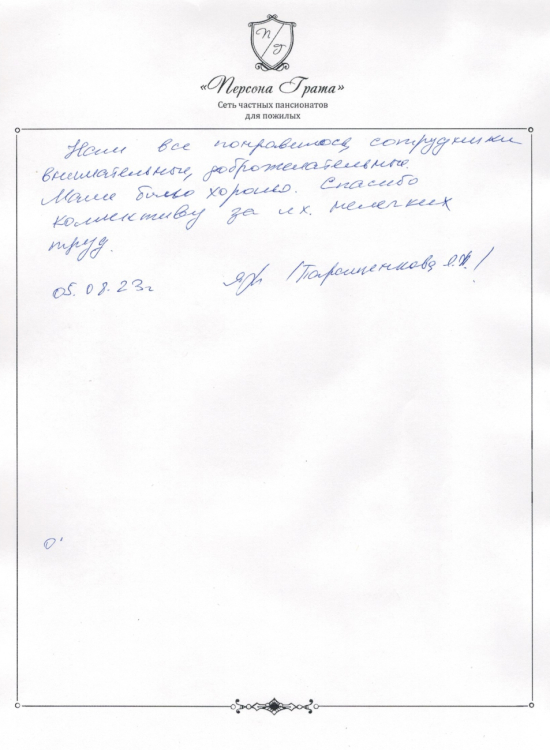 П/Г
«Персона Грата»
Сеть частных пансионатов
для пожилых
Нам все понравилось, сотрудники
внимательные, доброжелательные.
Маме было хорошо. Спасибо
коллективу за их нелегких
труд.
05.08.23г